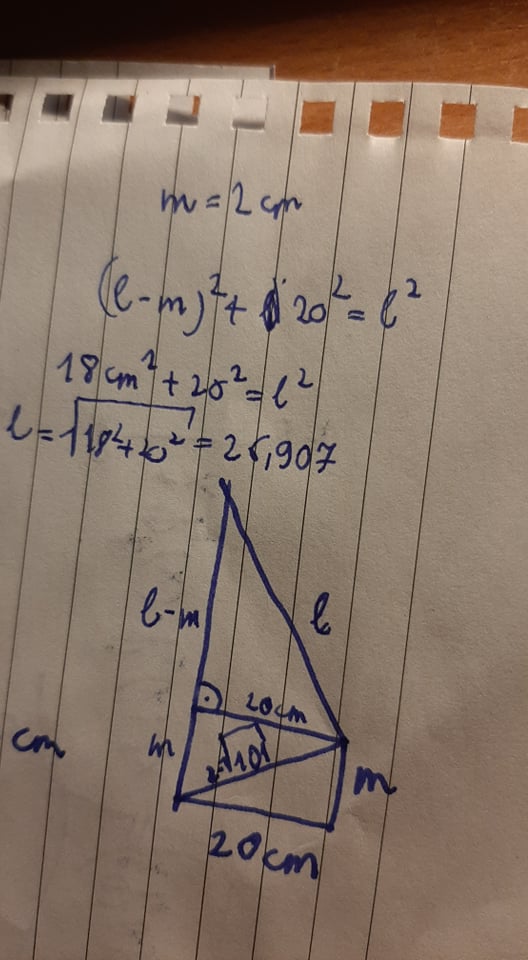 m = 2 cm
(l - m)² + 20² = l²
18 cm² + 20² = l²
l = √18² + 20² = 26,907
l - m
l
20 cm
cm
m
m
20 cm